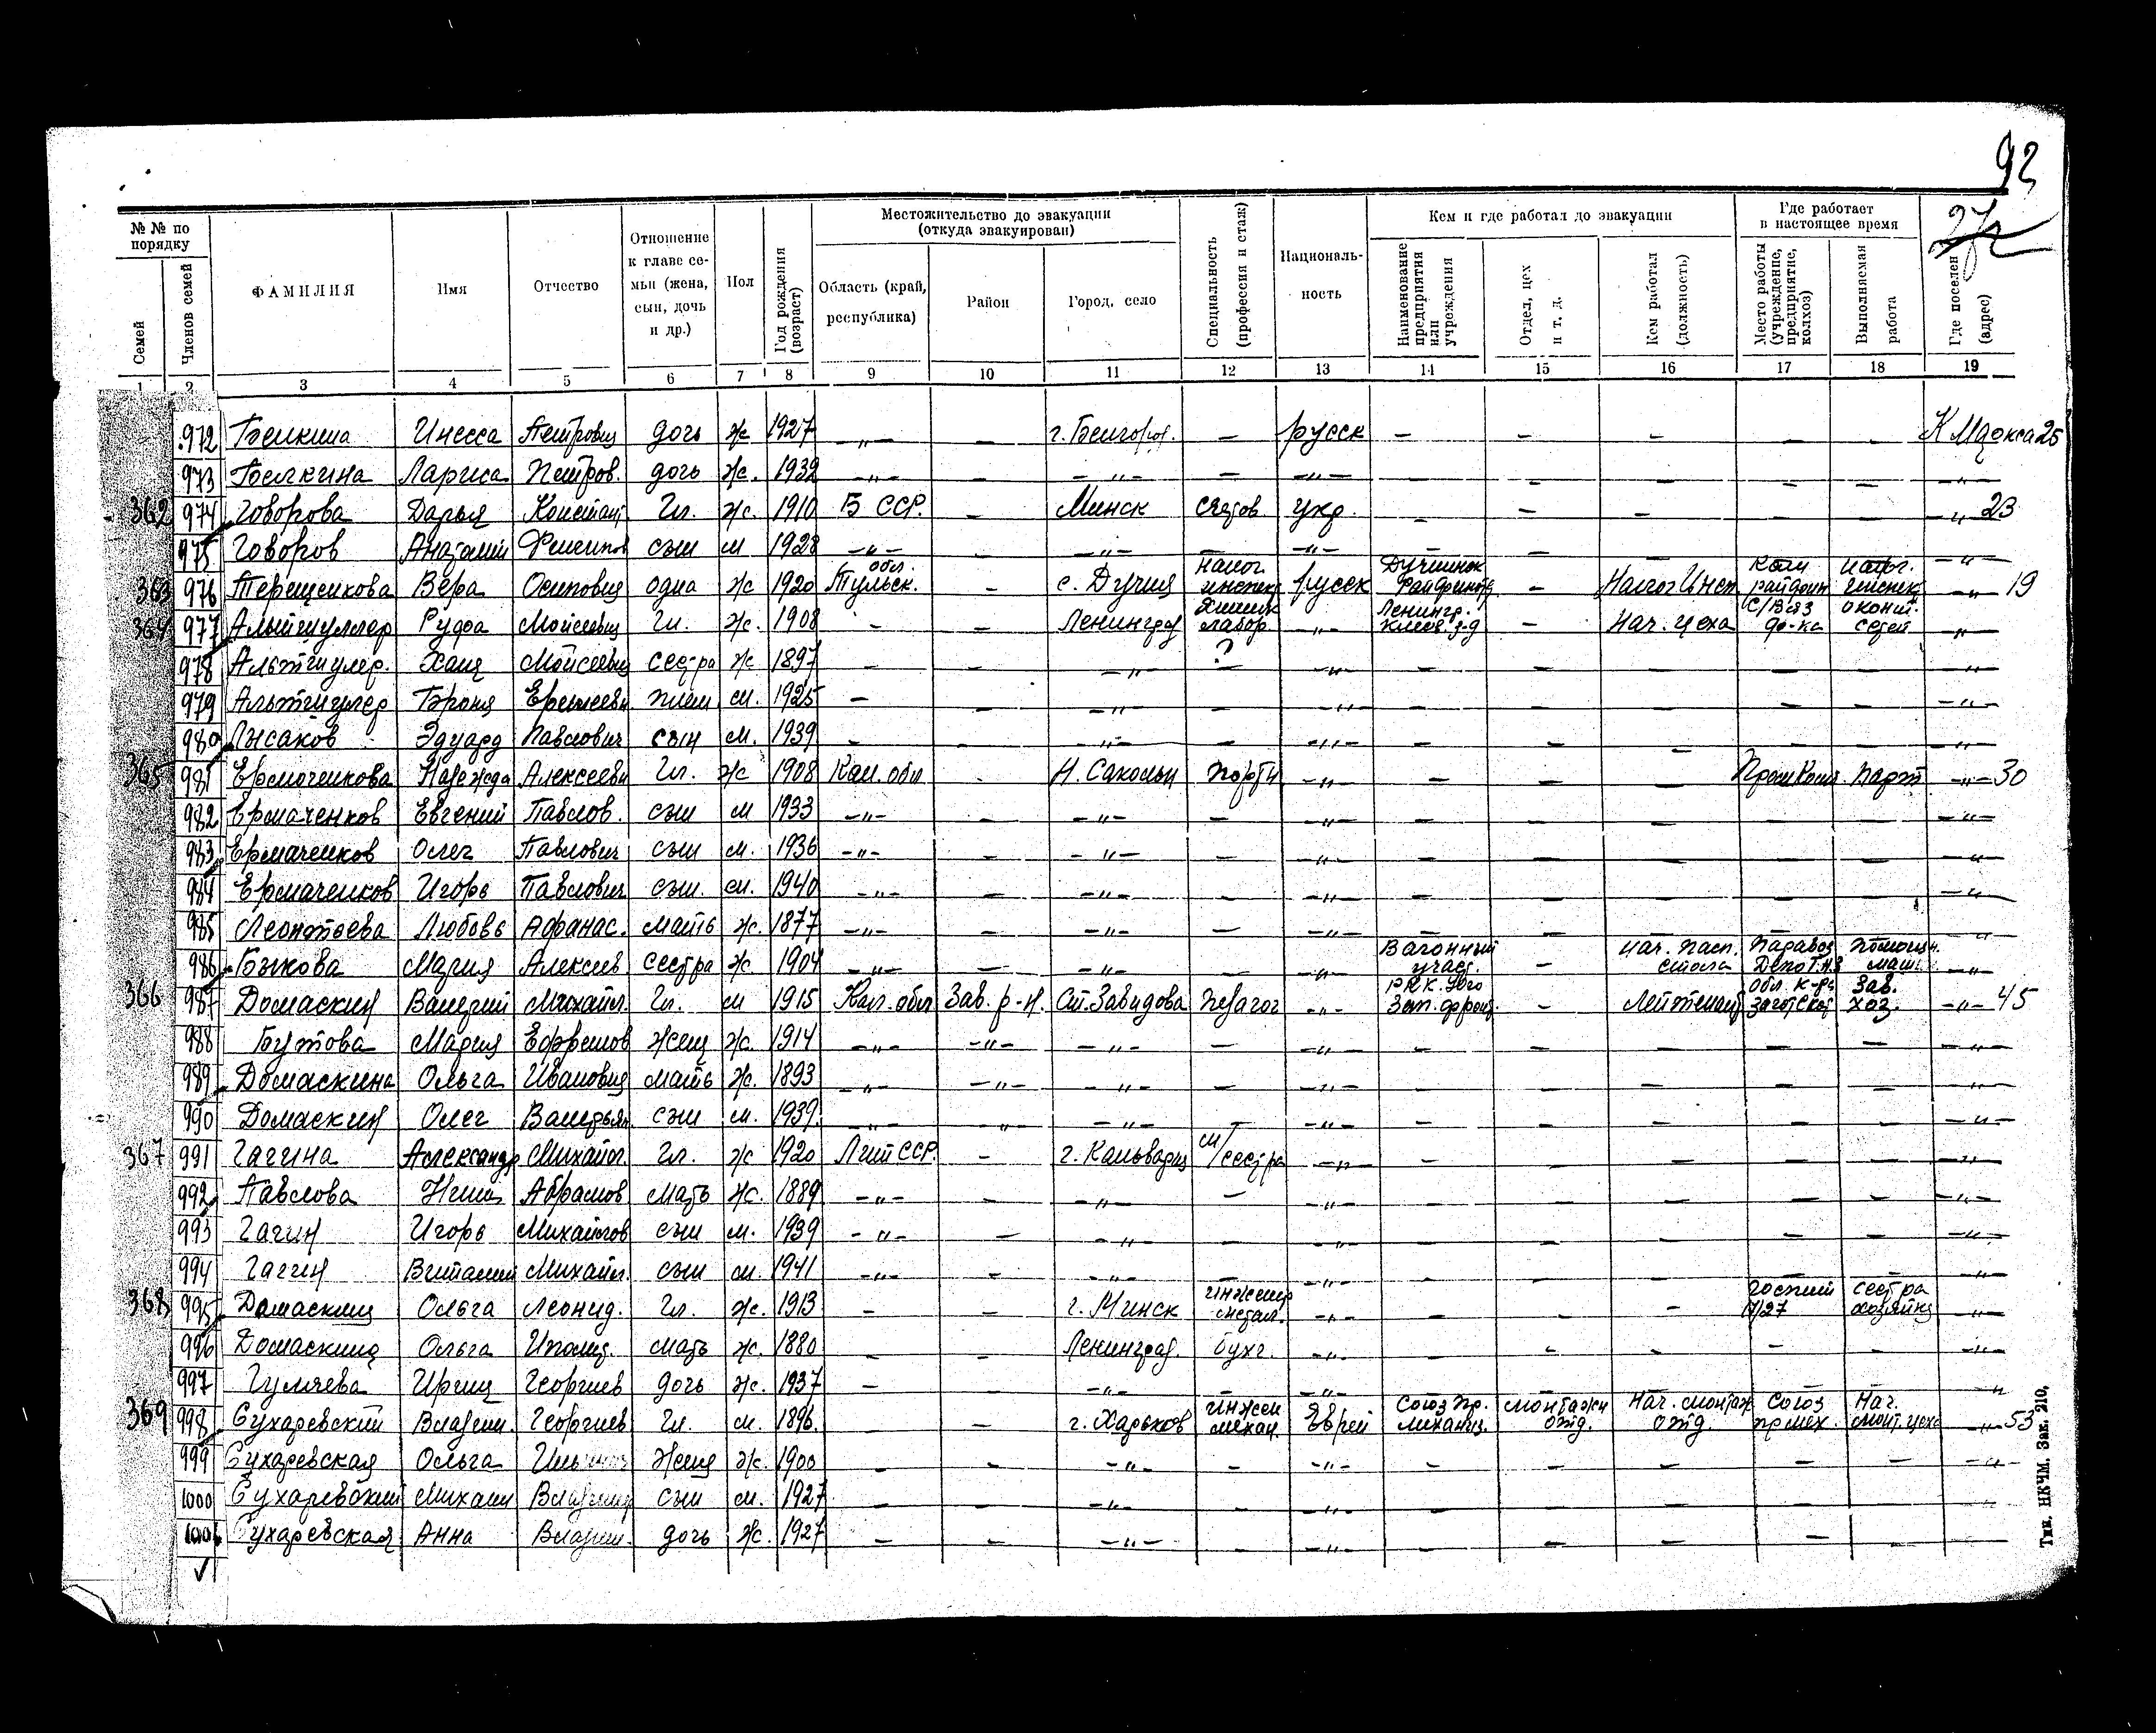 92
27
№ № по порядку
Семей
Членов семей
ФАМИЛИЯ
Имя
Отчество
Отношение к главе семьи (жена, сын, дочь и др.)
Пол
Год рождения (возраст)
Местожительство до эвакуации (откуда эвакуирован)
Область (край, республика)
Район
Город, село
Специальность (профессия и стаж)
Национальность
Кем и где работал до эвакуации
Наименование предприятия или учреждения
Отдел, цех и т. д.
Кем работал (должность)
Где работает в настоящее время
Место работы (учреждение, предприятие, колхоз)
Выполняемая работа
Где поселен (адрес)
1 2 3 4 5 6 7 8 9 10 11 12 13 14 15 16 17 18 19
972 Белкина Инесса Петровна дочь ж 1927 -"- — — русск — — — — — К Маркса 25
973 Белкина Лариса Петров. дочь ж. 1932 -"- — -"- — -"- — — — — — -"-
362 974 Говорова Дарья Констан Гл. ж. 1910 БССР. — Минск счетов укр. — — — — — -"- 23
975 Говоров Анатолий Филипов сын м 1928 -"- — -"- — -"- — — — — — -"-
363 976 Терещенкова Вера Осиповна одна ж 1920 Тульск. обл. — с. налог. инспек русск — Налог Инсп -"- 19
364 977 Альтшуллер Руфа Моисеевна Гл. ж. 1908 - — Ленинград химик лабор -"- Ленингр. клеев. з-д — Нач. цеха -"-
978 Альтшулер. Хана Моисеевна сестра ж 1897 — — -"- ? — -"- — — — — — -"-
979 Альтшулер Броня Еремеевн. плем м. 1925 — — -"- — -"- — — — — — -"-
980 Лысаков Эдуард Павлович сын м. 1939 — — -"- — -"- — — — — — -"-
365 981 Ермоченкова Надежда Алексеевн Гл. ж 1908 Кал. обл - Н. Сакольн портн -"- — — — ПромКомб. порт -"- 30
982 Ермаченков Евгений Павлов. сын м 1933 -"- — -"- — -"- — — — — — -"-
983 Ермаченков Олег Павлович сын м. 1936 -"- — -"- — -"- — — — — — -"-
984 Ермаченков Игорь Павлович сын. м. 1940 -"- — -"- — -"- — — — — — -"-
985 Леонтьева Любовь Афанас. мать ж. 1877 -"- — -"- — -"- — — — — — -"-
986 Быкова Мария Алексеев сестра ж 1904 -"- — -"- — -"- Вагонный участ. — нач. пасп. стола Паравоз Депо помощн. маш. -"-
366 987 Домаскин Валерий Михайл. Гл. м 1915 Кал. обл Зав. р-н. Ст. Завидова педагог -"- Зап. фронт. — Лейтенант обл. к-ра заготскот зав. хоз. -"- 45
988 Бутова Мария Ефремов жена ж. 1914 -"- -"- -"- — -"- — — — — — -"-
989 Домаскина Ольга Ивановна мать ж. 1893 -"- -"- -"- — -"- — — — — — -"-
990 Домаскин Олег Валерьян. сын м. 1939. -"- -"- -"- — -"- — — — — — -"-
367 991 Гагина Александр Михайл. Гл. ж 1920 Лит ССР. — г. Кальвария м/сестра -"- — — — — — -"-
992 Павлова Нина Абрамов мать ж. 1889 -"- — -"- — -"- — — — — — -"-
993 Гагин Игорь Михайлов сын м. 1939 -"- — -"- — -"- — — — — — -"-
994 Гагин Виталий Михайл. сын м. 1941 -"- — -"- — -"- — — — — — -"-
368 995 Домаскина Ольга Леонид. Гл. ж. 1913 — — г. Минск инженер метал. -"- — — — госпит 1127 сестра хозяйка -"-
996 Домаскина Ольга Иполит. мать ж. 1880 — — Ленинград. бухг. -"- — — — — — -"-
997 Гуляева Ирина Георгиев дочь ж. 1937 — — -"- — -"- — — — — — -"-
369 998 Сухаревский Владим. Георгиев Гл. м. 1896. — — г. Харьков инжен механ. Еврей Союз пр. механиз. монтажн отд. Нач. монтаж отд. Союз пр мех. Нач. монт. цеха -"- 53
999 Сухаревская Ольга жена ж. 1900 — — -"- — -"- — — — — — -"-
1000 Сухаревский Михаил Владимир сын м. 1927 — — -"- — -"- — — — — — -"-
1001 Сухаревская Анна Владим. дочь ж. 1927 — — -"- — -"- — — — — — -"-
Тип. НКЧМ. Зак. 210.